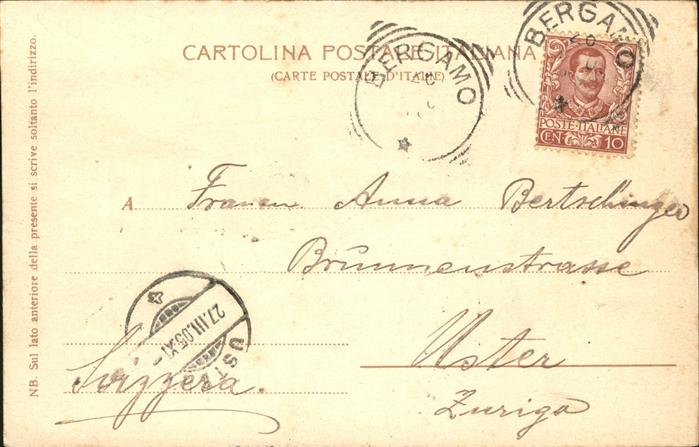 CARTOLINA POSTALE ITALIANA
(CARTE POSTALE D'ITALIE)
BERGAMO
BERGAMO
20
POSTE ITALIANE
CEN 10
A Anna Bertschinger
Brünnenstrasse
Uster
Zurigo
Svizzera.
27.III.05.XI
UST
NB. Sul lato anteriore della presente si scrive soltanto l'indirizzo.